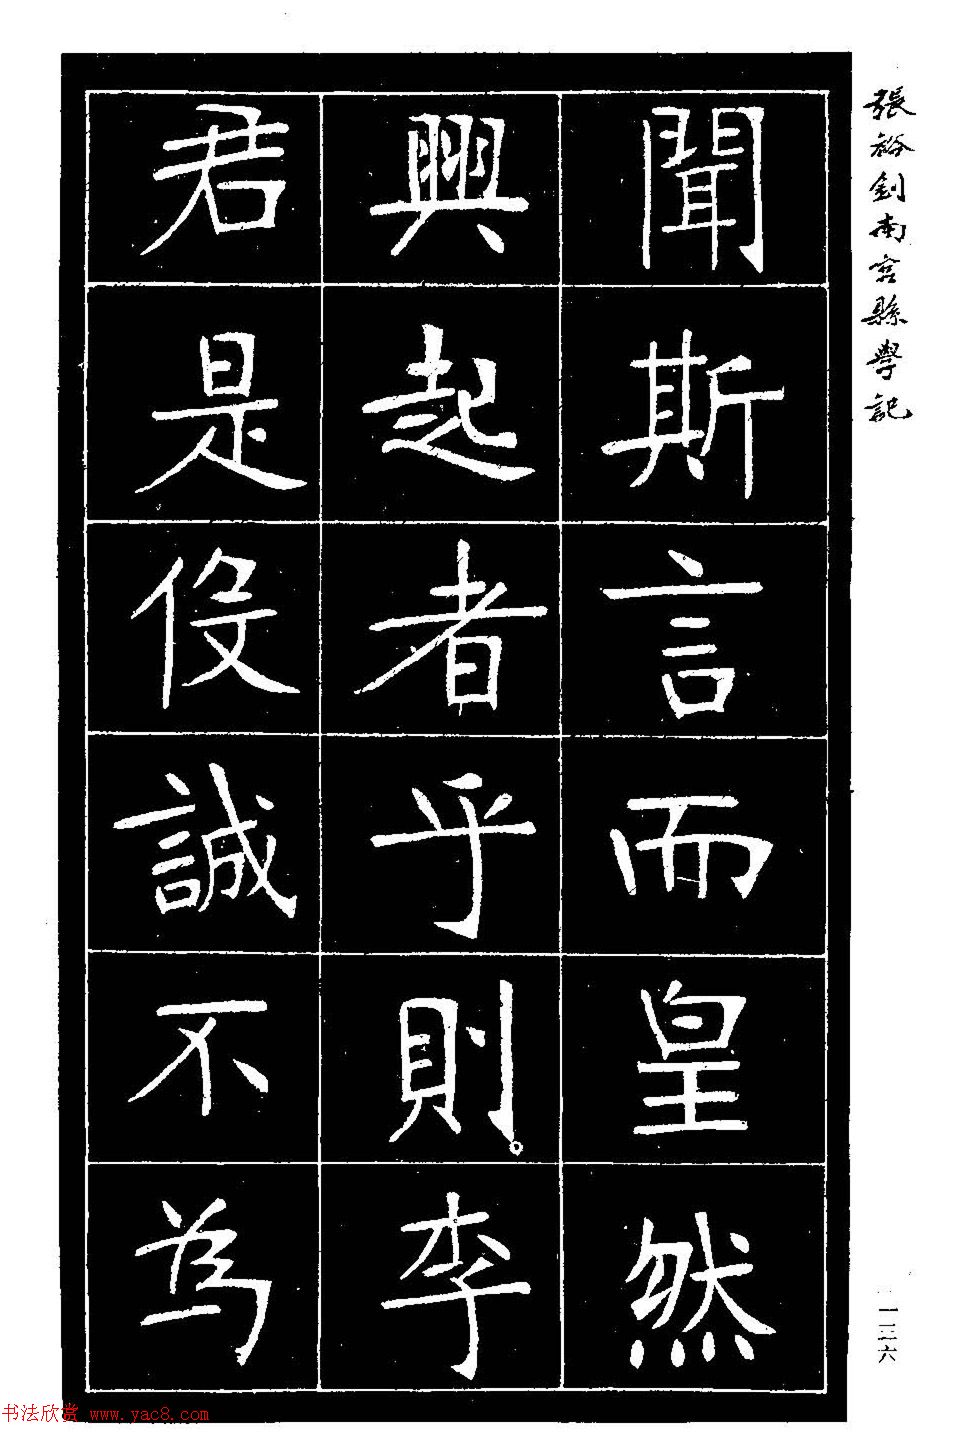 張裕釗南宮縣學記
聞斯言而皇然
興起者乎則。李
君是役誠不為
一二六
书法欣赏 www.yac8.com